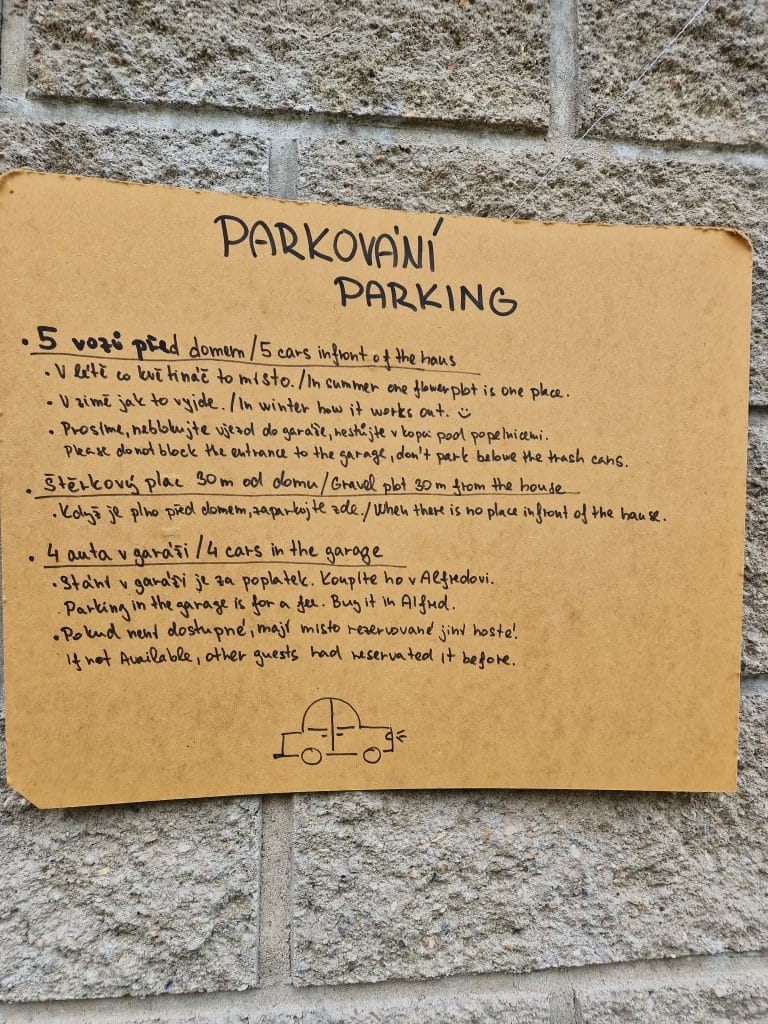 PARKOVÁNÍ
PARKING
• 5 vozů před domem / 5 cars infront of the haus
• V létě co květináč to místo. / In summer one flowerplot is one place.
• V zimě jak to vyjde. / In winter how it works out. ☺
• Prosíme, neblokujte vjezd do garáže, nestůjte v kopci pod popelnicemi.
Please do not block the entrance to the garage, don't park below the trash cans.
• Štěrkový plac 30 m od domu / Gravel plot 30 m from the house
• Když je plno před domem, zaparkujte zde. / When there is no place infront of the hause.
• 4 auta v garáži / 4 cars in the garage
• Stání v garáži je za poplatek. Koupíte ho v Alfredovi.
Parking in the garage is for a fee. Buy it in Alfred.
• Pokud není dostupné, mají místo rezervované jiní hosté!
If not Available, other guests had reservated it before.